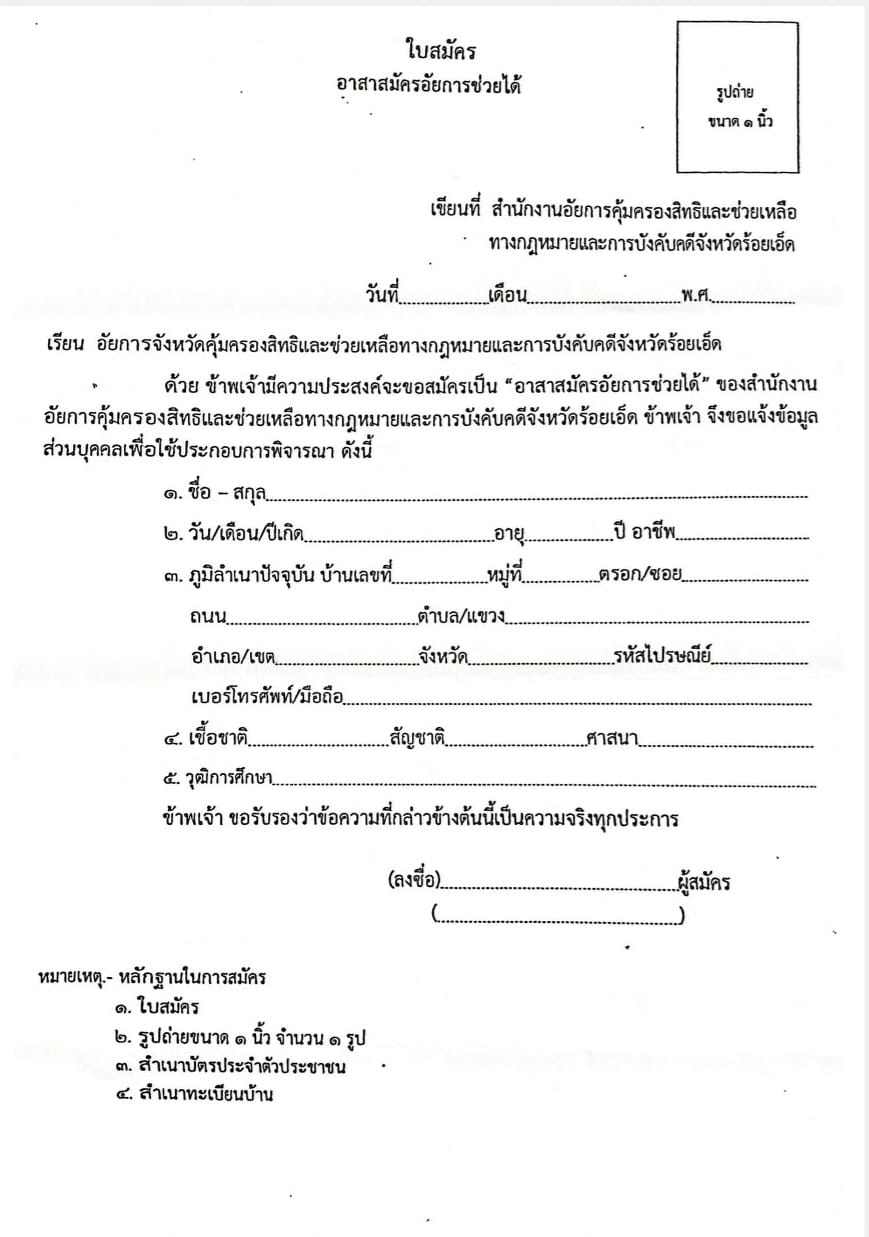 ใบสมัคร
อาสาสมัครอัยการช่วยได้
รูปถ่าย
ขนาด ๑ นิ้ว
เขียนที่ สำนักงานอัยการคุ้มครองสิทธิและช่วยเหลือ
ทางกฎหมายและการบังคับคดีจังหวัดร้อยเอ็ด
วันที่....................เดือน....................พ.ศ.....................
เรียน อัยการจังหวัดคุ้มครองสิทธิและช่วยเหลือทางกฎหมายและการบังคับคดีจังหวัดร้อยเอ็ด
ด้วย ข้าพเจ้ามีความประสงค์จะขอสมัครเป็น “อาสาสมัครอัยการช่วยได้” ของสำนักงาน
อัยการคุ้มครองสิทธิและช่วยเหลือทางกฎหมายและการบังคับคดีจังหวัดร้อยเอ็ด ข้าพเจ้า จึงขอแจ้งข้อมูล
ส่วนบุคคลเพื่อใช้ประกอบการพิจารณา ดังนี้
๑. ชื่อ – สกุล....................
๒. วัน/เดือน/ปีเกิด....................อายุ....................ปี อาชีพ....................
๓. ภูมิลำเนาปัจจุบัน บ้านเลขที่....................หมู่ที่....................ตรอก/ซอย....................
ถนน....................ตำบล/แขวง....................
อำเภอ/เขต....................จังหวัด....................รหัสไปรษณีย์....................
เบอร์โทรศัพท์/มือถือ....................
๔. เชื้อชาติ....................สัญชาติ....................ศาสนา....................
๕. วุฒิการศึกษา....................
ข้าพเจ้า ขอรับรองว่าข้อความที่กล่าวข้างต้นนี้เป็นความจริงทุกประการ
(ลงชื่อ)....................ผู้สมัคร
(....................)
หมายเหตุ.- หลักฐานในการสมัคร
๑. ใบสมัคร
๒. รูปถ่ายขนาด ๑ นิ้ว จำนวน ๑ รูป
๓. สำเนาบัตรประจำตัวประชาชน
๔. สำเนาทะเบียนบ้าน